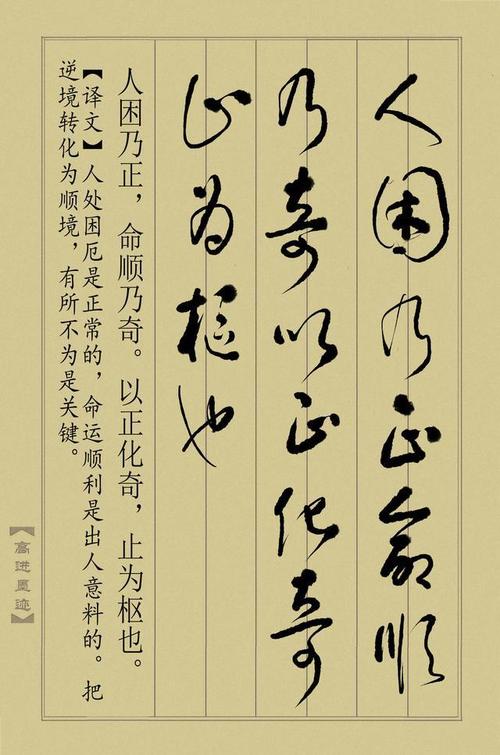 人困乃正命顺
乃奇以正化奇
止为枢也
人困乃正，命顺乃奇。以正化奇，止为枢也。
【译文】人处困厄是正常的，命运顺利是出人意料的。把
逆境转化为顺境，有所不为是关键。
【高进墨迹】